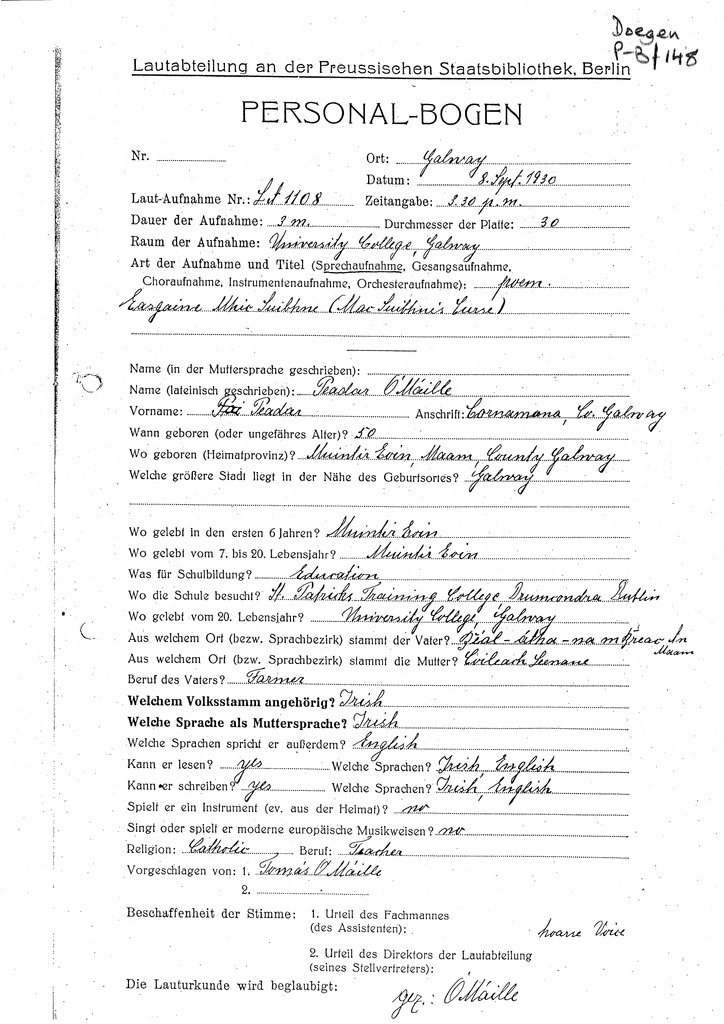 Doegen
P-B/148
Lautabteilung an der Preussischen Staatsbibliothek, Berlin
PERSONAL-BOGEN
Nr.
Ort: Galway
Datum: 8. Sept. 1930
Laut-Aufnahme Nr.: LA 1108 Zeitangabe: 3.30 p.m.
Dauer der Aufnahme: 3 m. Durchmesser der Platte: 30
Raum der Aufnahme: University College, Galway
Art der Aufnahme und Titel (Sprechaufnahme, Gesangsaufnahme,
Choraufnahme, Instrumentenaufnahme, Orchesteraufnahme): poem.
Easgaine Mhic Suibhne (Mac Suibhne's Curse)
Name (in der Muttersprache geschrieben):
Name (lateinisch geschrieben): Peadar Ó'Máille
Vorname: Peadar Anschrift: Cornamona, Co. Galway
Wann geboren (oder ungefähres Alter)? 50
Wo geboren (Heimatprovinz)? Muintir Eoin, Maam, County Galway
Welche größere Stadt liegt in der Nähe des Geburtsortes? Galway
Wo gelebt in den ersten 6 Jahren? Muintir Eoin
Wo gelebt vom 7. bis 20. Lebensjahr? Muintir Eoin
Was für Schulbildung? Education
Wo die Schule besucht? St. Patricks Training College Drumcondra Dublin
Wo gelebt vom 20. Lebensjahr? University College, Galway
Aus welchem Ort (bezw. Sprachbezirk) stammt der Vater? Béal-átha-na mBreac In
Maam
Aus welchem Ort (bzw. Sprachbezirk) stammt die Mutter? Leenane
Beruf des Vaters? Farmer
Welchem Volksstamm angehörig? Irish
Welche Sprache als Muttersprache? Irish
Welche Sprachen spricht er außerdem? English
Kann er lesen? yes Welche Sprachen? Irish, English
Kann er schreiben? yes Welche Sprachen? Irish, English
Spielt er ein Instrument (ev. aus der Heimat)? no
Singt oder spielt er moderne europäische Musikweisen? no
Religion: Catholic Beruf: Teacher
Vorgeschlagen von: 1. Tomás Ó Máille
2.
Beschaffenheit der Stimme: 1. Urteil des Fachmannes
(des Assistenten): hoarse Voice
2. Urteil des Direktors der Lautabteilung
(seines Stellvertreters):
Die Lauturkunde wird beglaubigt:
gez.: Ó'Máille